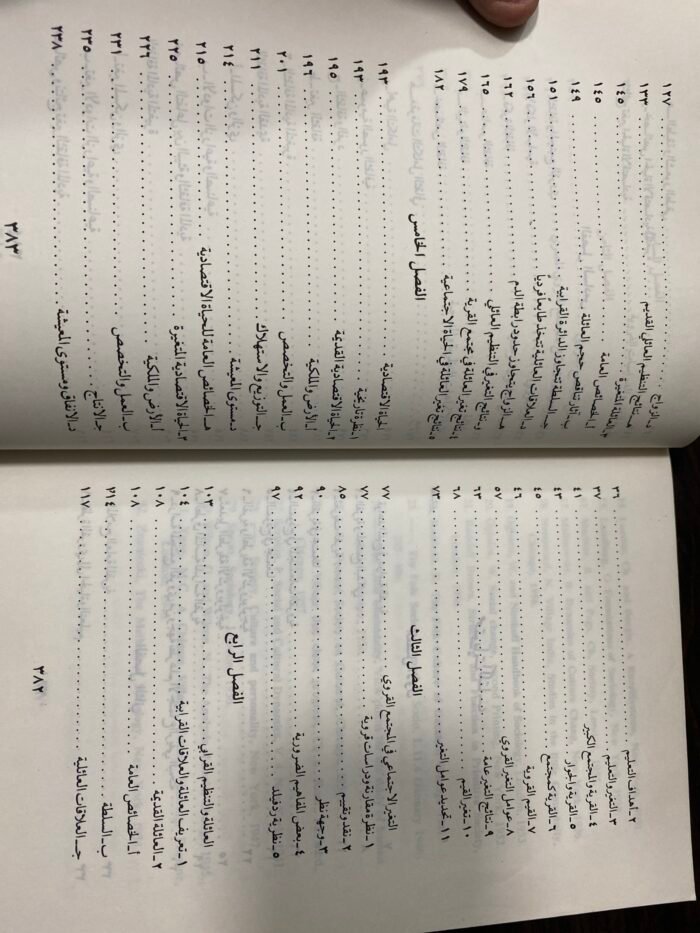 ٢ - أهداف التعليم ........ ٣٦
٣ - التغير والتعليم ........ ٣٧
٤ - القرية والمجتمع الكبير ........ ٤١
٥ - القرية والجوار ........ ٤٣
٦ - القرية كمجتمع ........ ٤٥
٧ - القيم القروية ........ ٤٦
٨ - عوامل التغير القروي ........ ٥٧
٩ - نتائج التغير عامة ........ ٦٣
١٠ - تغير القيم ........ ٦٨
١١ - تحديد عوامل التغير ........ ٧٣
الفصل الثالث
التغير الاجتماعي في المجتمع القروي ........ ٧٧
١ - نظرة مقارنة ودراسات قروية ........ ٧٧
٢ - نقد وتقييم ........ ٨٥
٣ - وجهة نظر ........ ٩٠
٤ - بعض المفاهيم الضرورية ........ ٩٢
٥ - نظرية ردفيلد ........ ٩٧
الفصل الرابع
العائلة والتنظيم القرابي ........ ١٠٣
١ - تعريف العائلة والعلاقات القرابية ........ ١٠٤
٢ - العائلة القديمة ........ ١٠٨
أ - الخصائص العامة ........ ١٠٨
ب - السلطة ........ ٢١٤
جـ - العلاقات العائلية ........ ١١٧
٣٨٢
د - الزواج ........ ١٢٧
هـ - نتائج التنظيم العائلي القديم ........ ١٣٣
٣ - العائلة المتغيرة ........ ١٤٥
أ - الخصائص العامة ........ ١٤٥
ب - آثار تناقص حجم العائلة ........ ١٤٩
جـ - السلطة تتجاوز الدائرة القرابية ........ ١٥١
د - العلاقات العائلية تتخذ طابعاً فردياً ........ ١٥٦
هـ - الزواج يتجاوز حدود رابطة الدم ........ ١٦٢
و - نتائج التغير في التنظيم العائلي ........ ١٦٥
٤ - نتائج تغير العائلة في مجتمع القرية ........ ١٧٩
٥ - نتائج تغير العائلة في الحياة الاجتماعية ........ ١٨٢
الفصل الخامس
الحياة الاقتصادية ........ ١٩٣
١ - نظرة تاريخية ........ ١٩٣
٢ - الحياة الاقتصادية القديمة ........ ١٩٥
أ - الأرض والملكية ........ ١٩٦
ب - العمل والتخصص ........ ٢٠١
جـ - التوزيع والاستهلاك ........ ٢١١
د - مستوى المعيشة ........ ٢١٤
هـ - الخصائص العامة للحياة الاقتصادية ........ ٢١٥
٣ - الحياة الاقتصادية المتغيرة ........ ٢٢٥
أ - الأرض والملكية ........ ٢٢٦
ب - العمل والتخصص ........ ٢٣١
جـ - الانتاج ........ ٢٣٥
د - الانفاق ومستوى المعيشة ........ ٢٣٨
٣٨٣